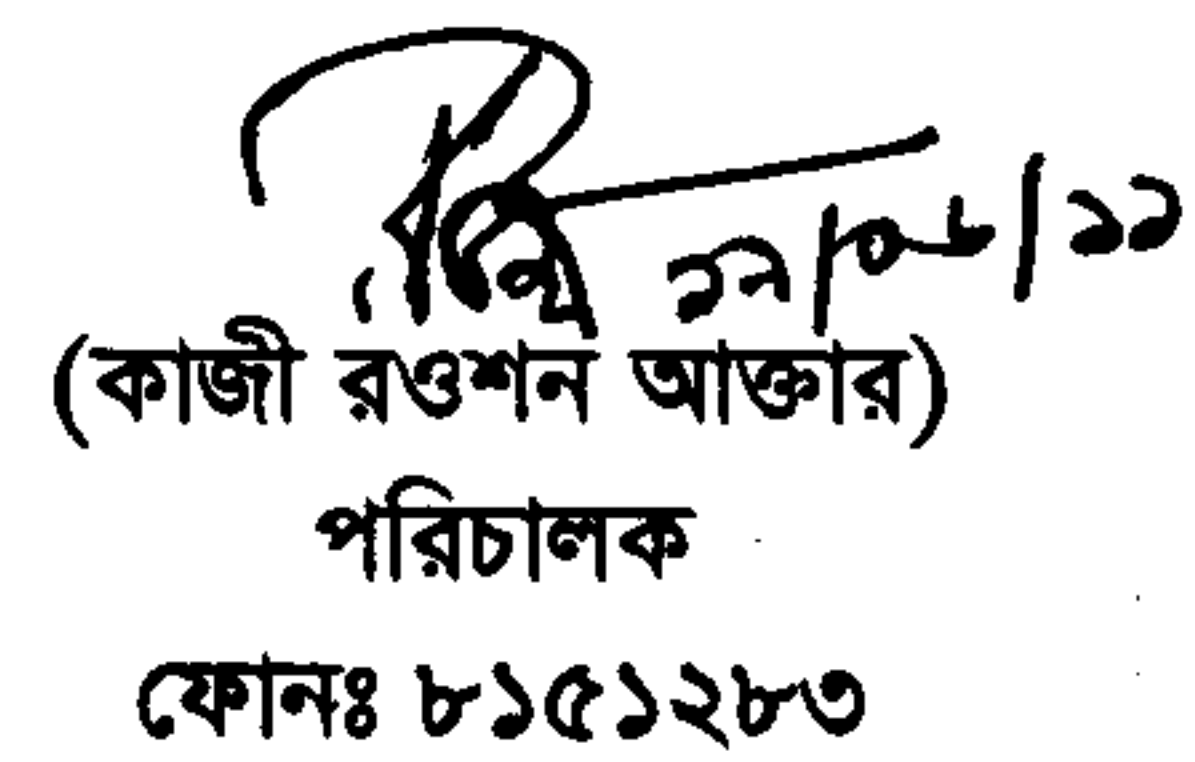 (কাজী রওশন আক্তার)
পরিচালক
ফোনঃ ৮১৫১২৮৩